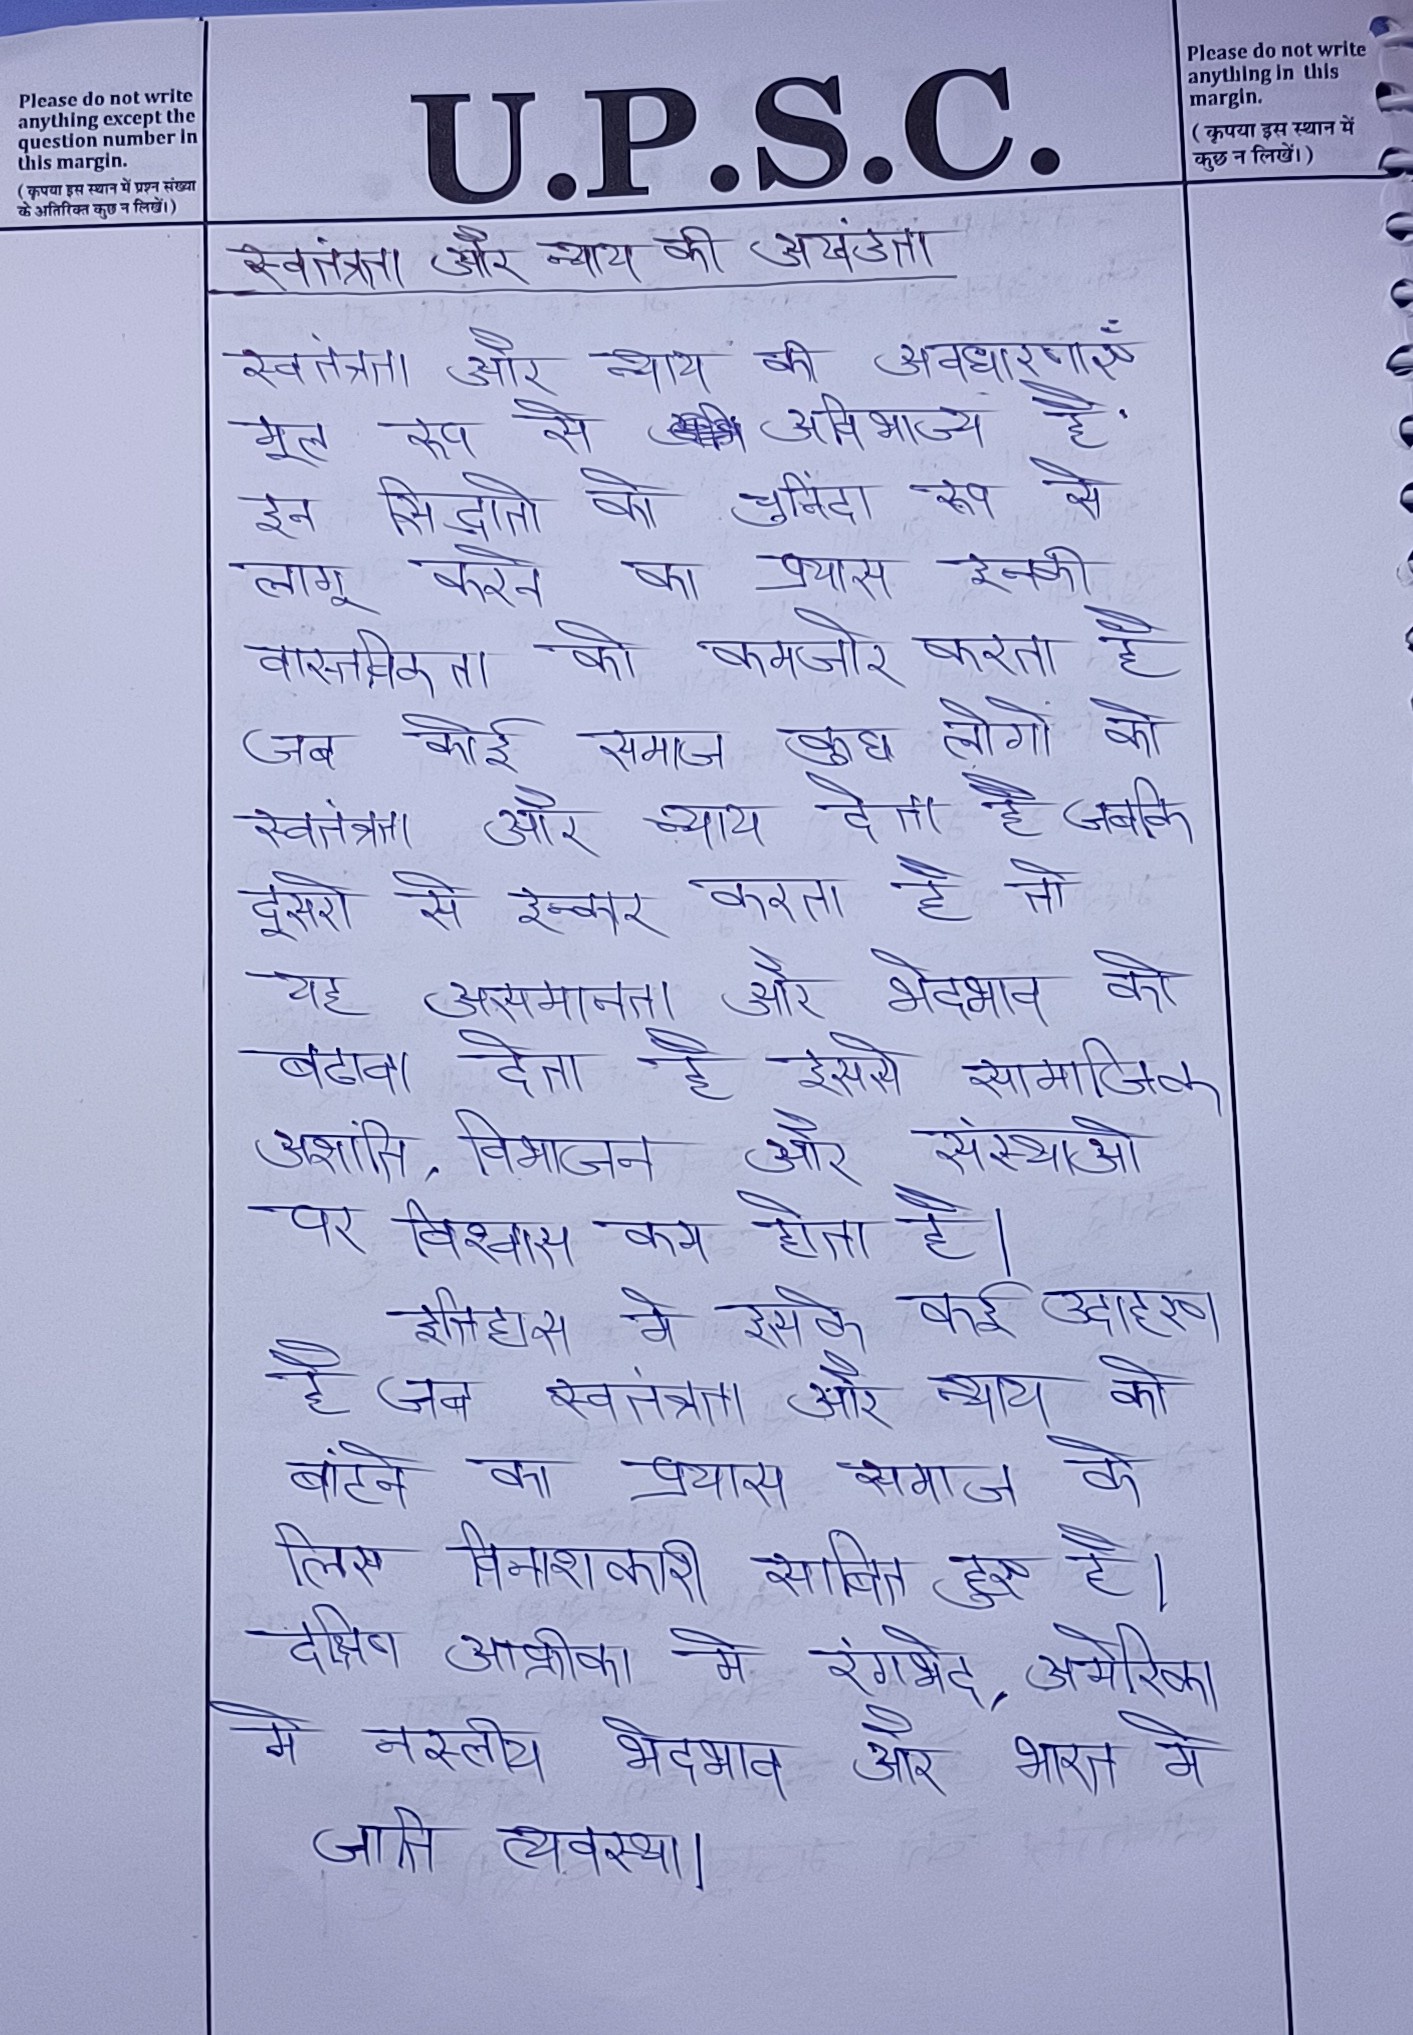 Please do not write
anything except the
question number in
this margin.
(कृपया इस स्थान में प्रश्न संख्या
के अतिरिक्त कुछ न लिखें।)
U.P.S.C.
Please do not write
anything in this
margin.
(कृपया इस स्थान में
कुछ न लिखें।)
स्वतंत्रता और न्याय की अखंडता
स्वतंत्रता और न्याय की अवधारणाएँ
मूल रूप से अविभाज्य है.
इन सिद्धातो को चुनिंदा रूप से
लागू करने का प्रयास इनकी
वास्तविकता को कमजोर करता है
जब कोई समाज कुछ लोगों को
स्वतंत्रता और न्याय देता है जबकि
दूसरो से इन्कार करता है तो
यह असमानता और भेदभाव को
बढावा देता है इससे सामाजिक
अशांति, विभाजन और संस्थाओ
पर विश्वास कम होता है।
इतिहास मे इसके कई उदाहरण
है जब स्वतंत्रता और न्याय को
बांटने का प्रयास समाज के
लिए विनाशकारी साबित हुए है।
दक्षिण आफ्रीका मे रंगभेद, अमेरिका
मे नस्लीय भेदभाव और भारत मे
जाति व्यवस्था।